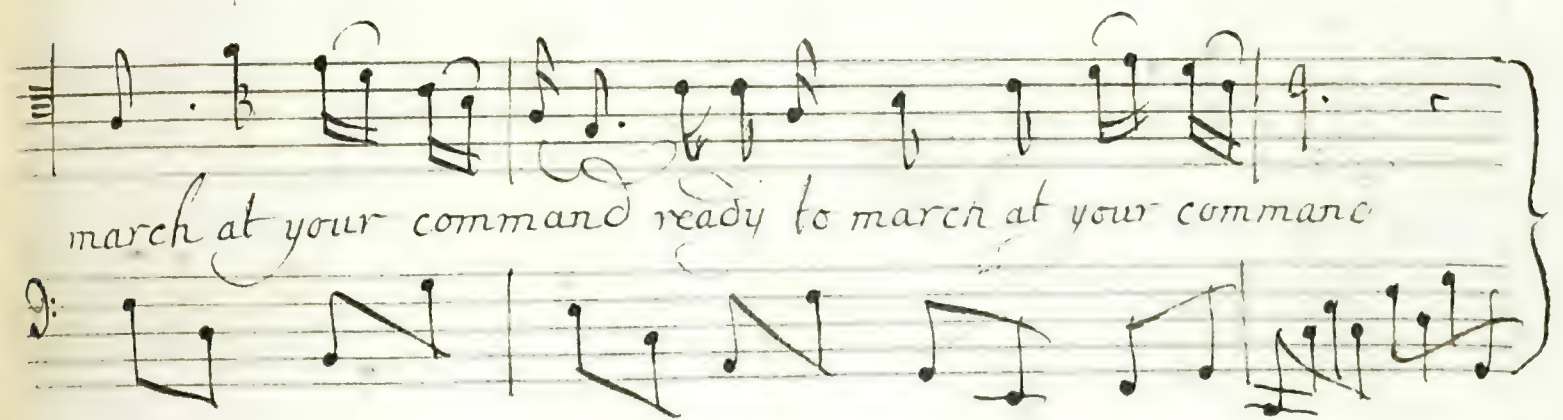 march at your command ready to march at your command